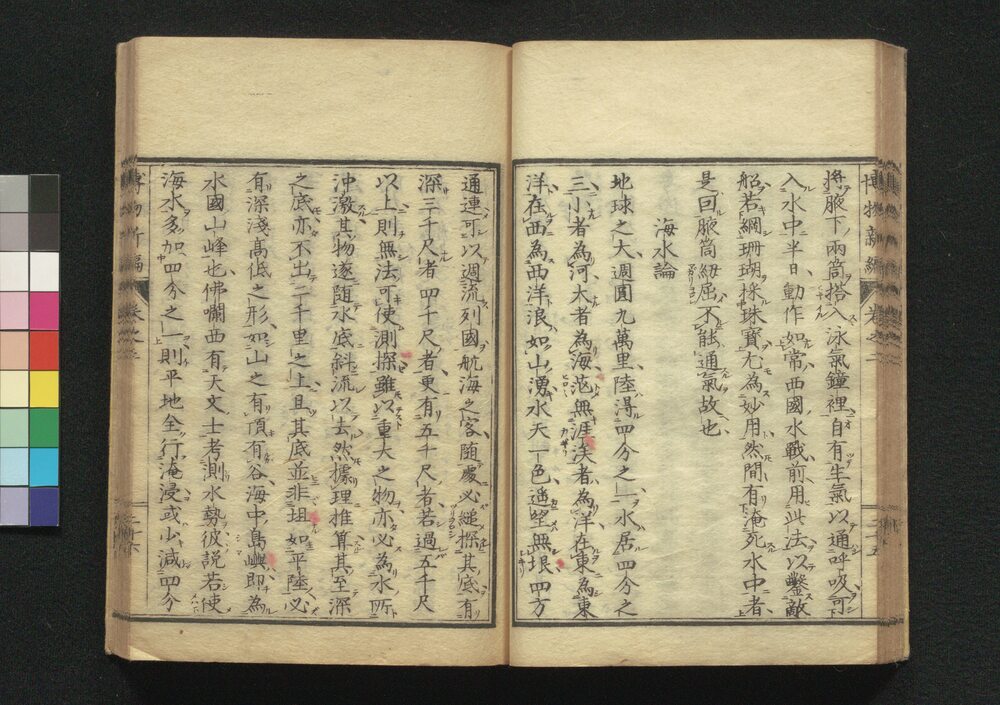 將腋下兩筒搭入泳氣鐘裡自有生氣以通呼吸可
入水中半日動作如常西國水戰前用此法以鑿敵
船若綱珊瑚採珠寶尤為妙用然間有淹死水中者
是回腋筒紐屈不能通氣故也
海水論
地球之大週圓九萬里陸得四分之一水居四分之
三小者為河大者為海茫無涯涘者為洋在東為東
洋在西為西洋浪如山湧水天一色遙望無垠四方
通連可以週流列國航海之客隨處必縋探其底有
深三千尺者四千尺者更有五千尺者若過五千尺
以上則無法可使測探雖以重大之物亦必為水所
沖激其物遂随水底斜流以去然據理推算其至深
之底亦不出二千里之上且其底並非坦如平陸必
有深淺高低之形如山之有頂有谷海中島嶼即為
水國山峰也佛囒西有天文士考測水勢彼説若使
海水多加四分之一則平地全行淹浸或少減四分
博物新編 卷之二
三十五
博物新編 卷之二
三十六